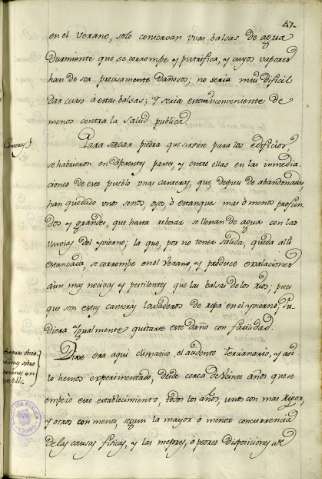 47.
en el verano, solo conservan unas balsas de agua
duramente que se corrompe y putrifica, y cuyos vapores
han de ser precisamente dañosos; no seria muy dificil
dar curso à estas balsas; Y seria este inconveniente de
menos contra la salud publica.
Para sacar piedra que sirviese para los edificios,
se habrieron en diferentes partes, y entre ellas en las inmedia
ciones de este pueblo unas canteras, que despues de abandonadas
han quedado unos ò estanques mas ó menos profun
dos y grandes, que hasta rebosar se llenan de agua con las
lluvias del ynvierno; lo que, por no tener salida, queda allì
estancada, se corrompe en el Verano, y produce exalaciones
aun mas nocivas y pestilentes que las balsas de los rios; pues
que son estas canteras lavaderos de ropa en el ynvierno. Pu
diera Ygualmente quitarse este daño con facilidad.
era aqui el Terzianario, y asi
lo hemos experimentado, desde cerca de veinte años que se
empezò este establecimiento, todos los años, unos con mas rigor,
y otros con menos, segun la mayor ó menor concurrencia
de las causas fisicas, y las mejores, ò peores disposiciones de